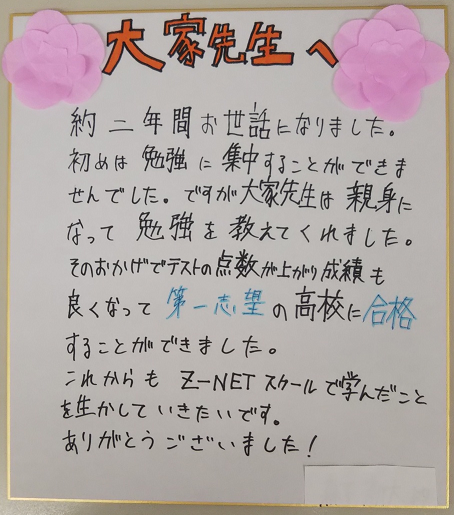 大家先生へ
約二年間お世話になりました。
初めは勉強に集中することができま
せんでした。ですが大家先生は親身に
なって勉強を教えてくれました。
そのおかげでテストの点数が上がり成績も
良くなって第一志望の高校に合格
することができました。
これからもZ-NETスクールで学んだこと
を生かしていきたいです。
ありがとうございました!